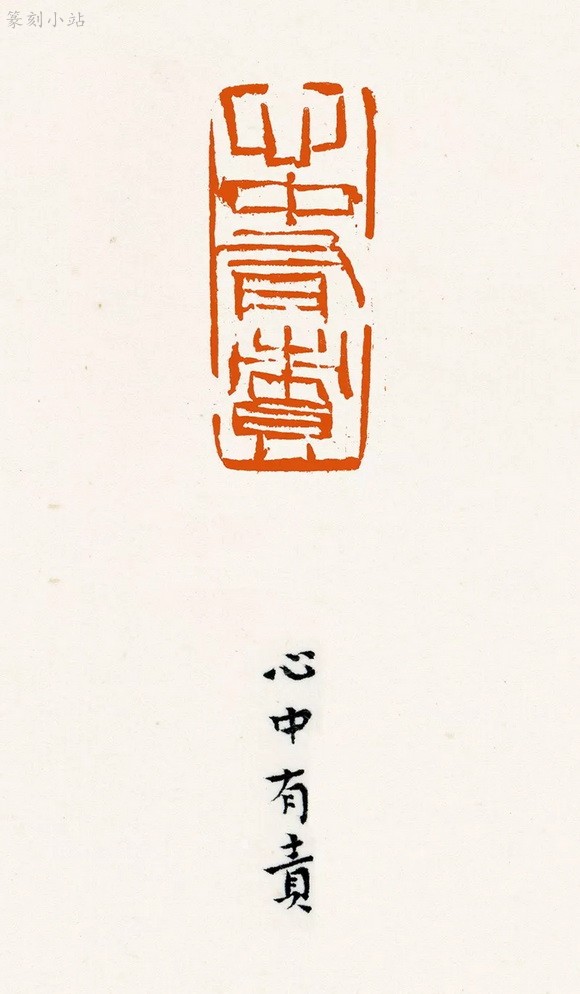 篆刻小站
心中有責
心中有責